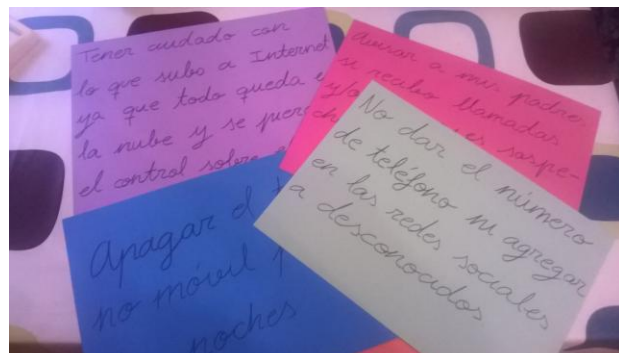 Tener cuidado con
lo que subo a Internet
ya que todo queda
la nube y se
el control sobre
Avisar a mis padres
si recibo llamadas
y/o
No dar el número
de teléfono ni agregar
en las redes sociales
a desconocidos
Apagar el
no móvil
noches